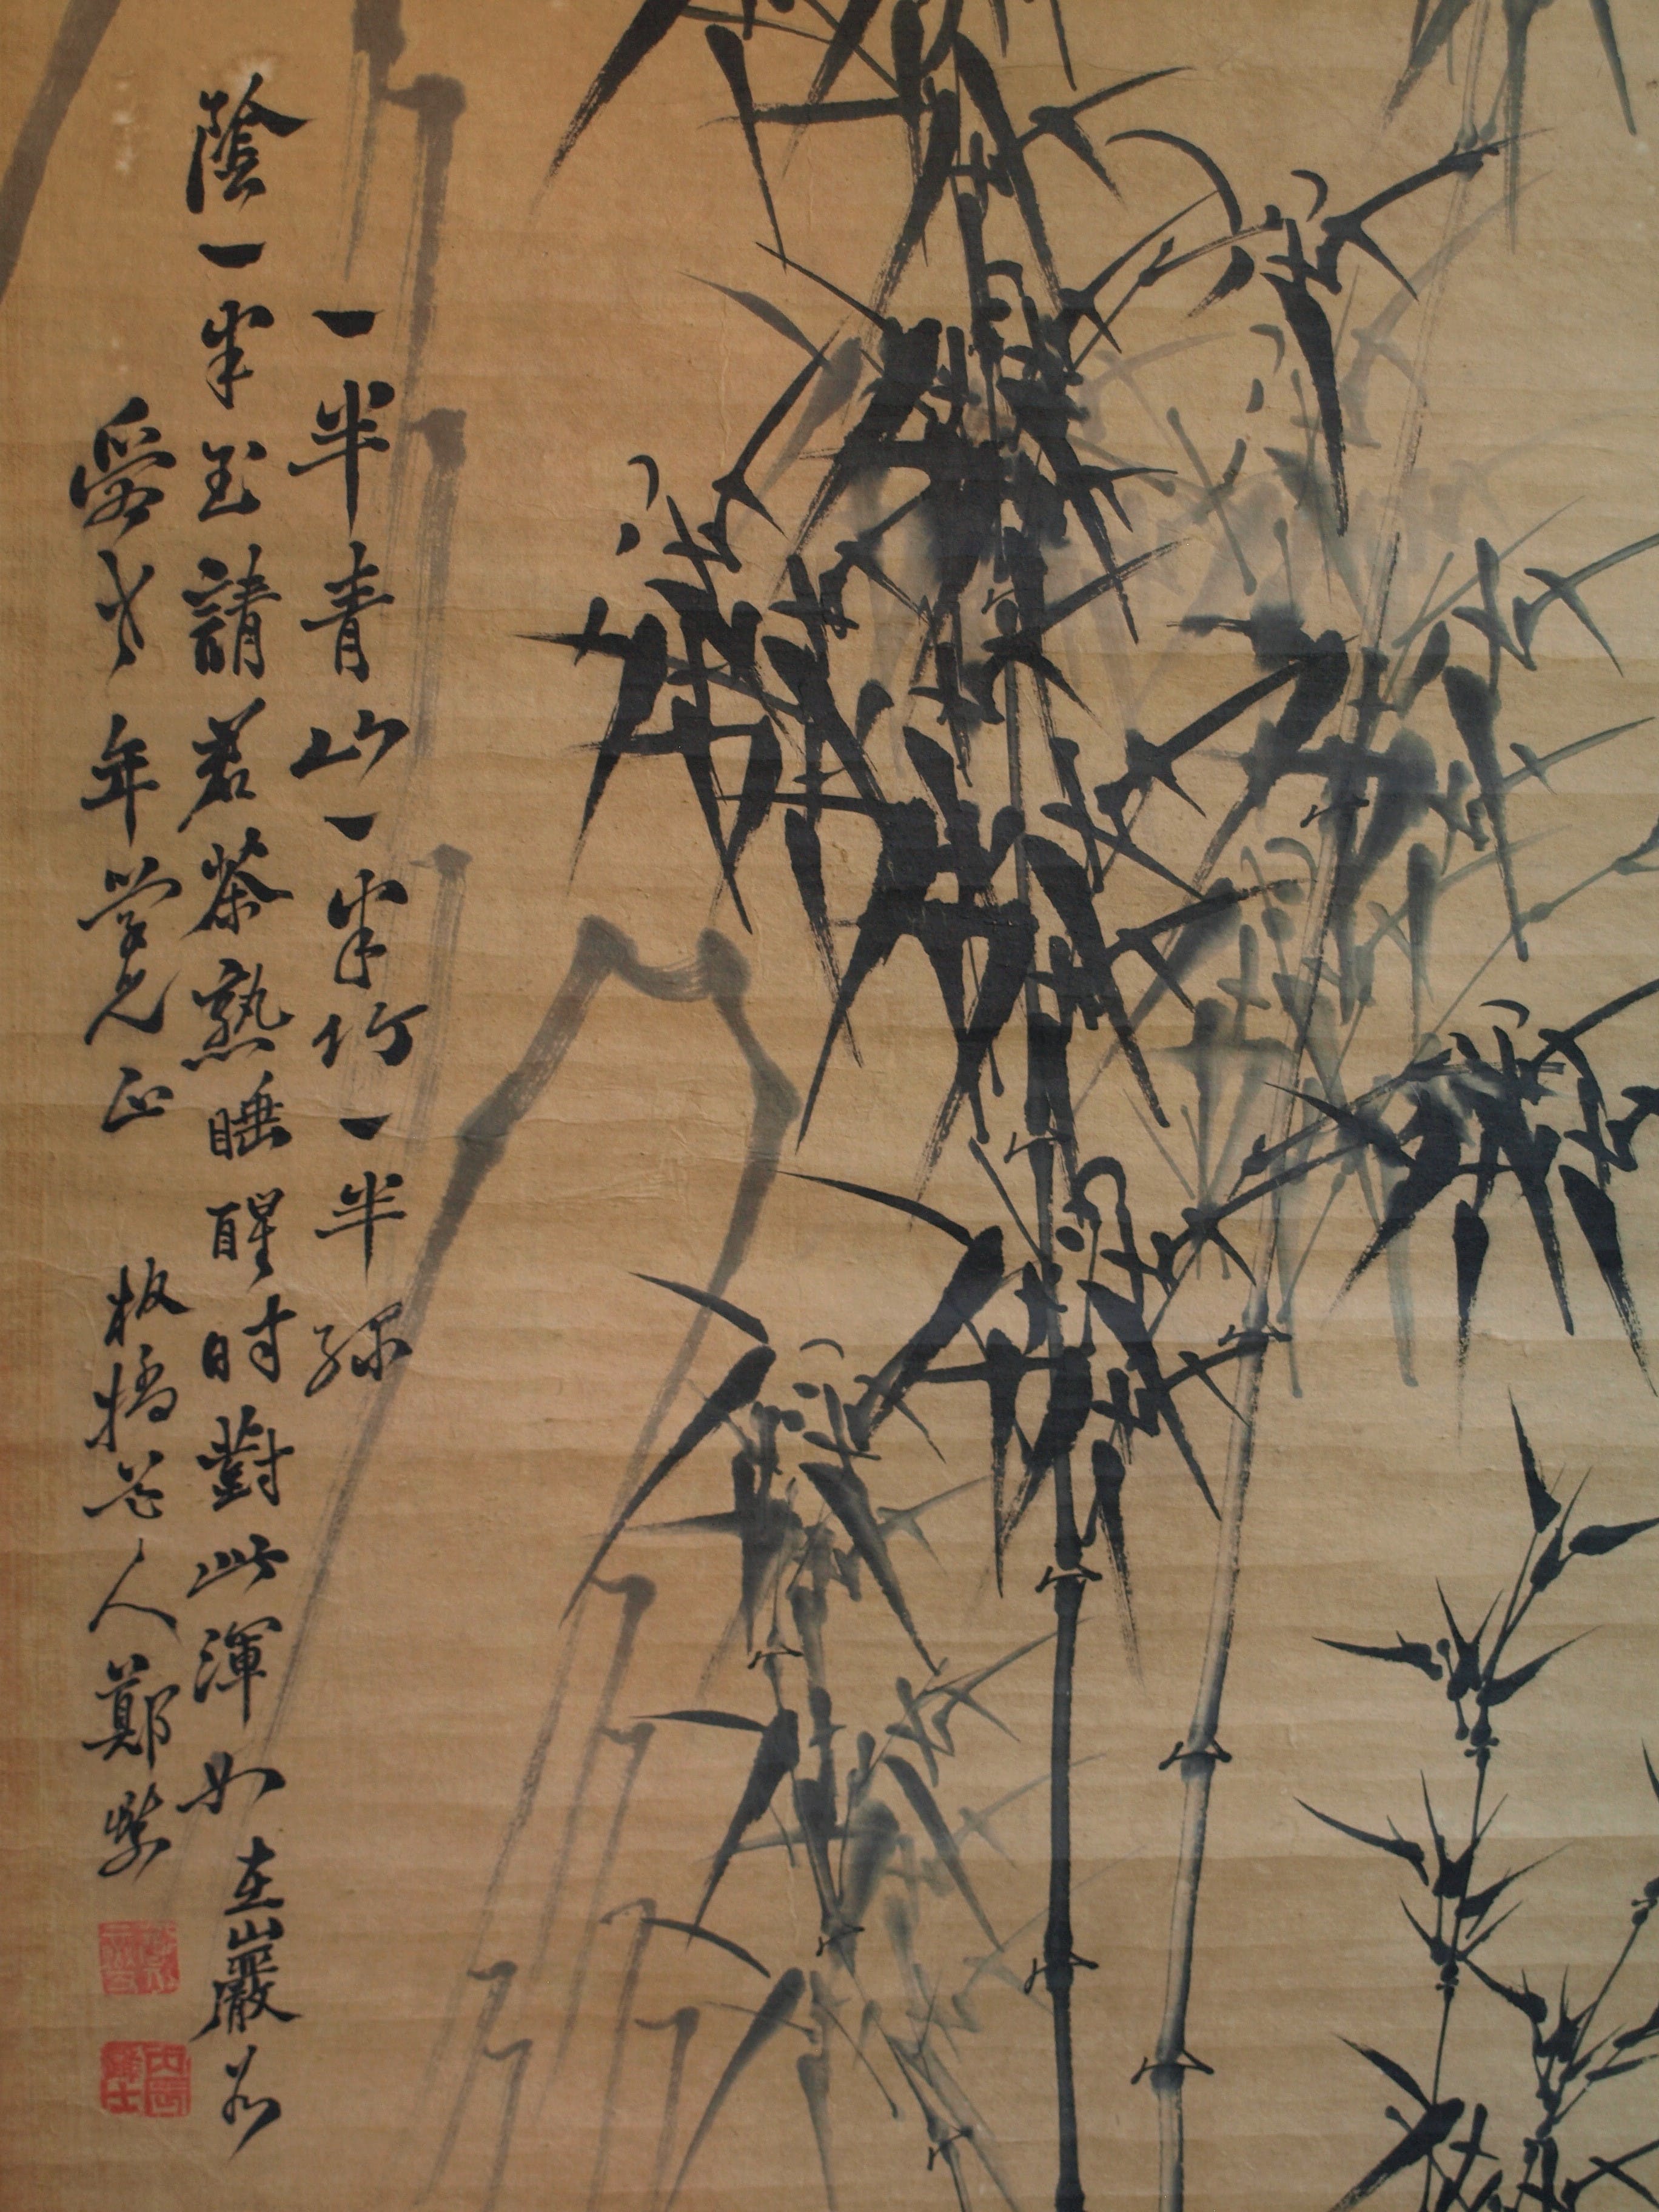 一半青山一半竹一半綠
陰一半玉請君茶熟睡醒時對此渾如在巖谷
老年學兄正 板橋老人鄭燮
丙辰進士